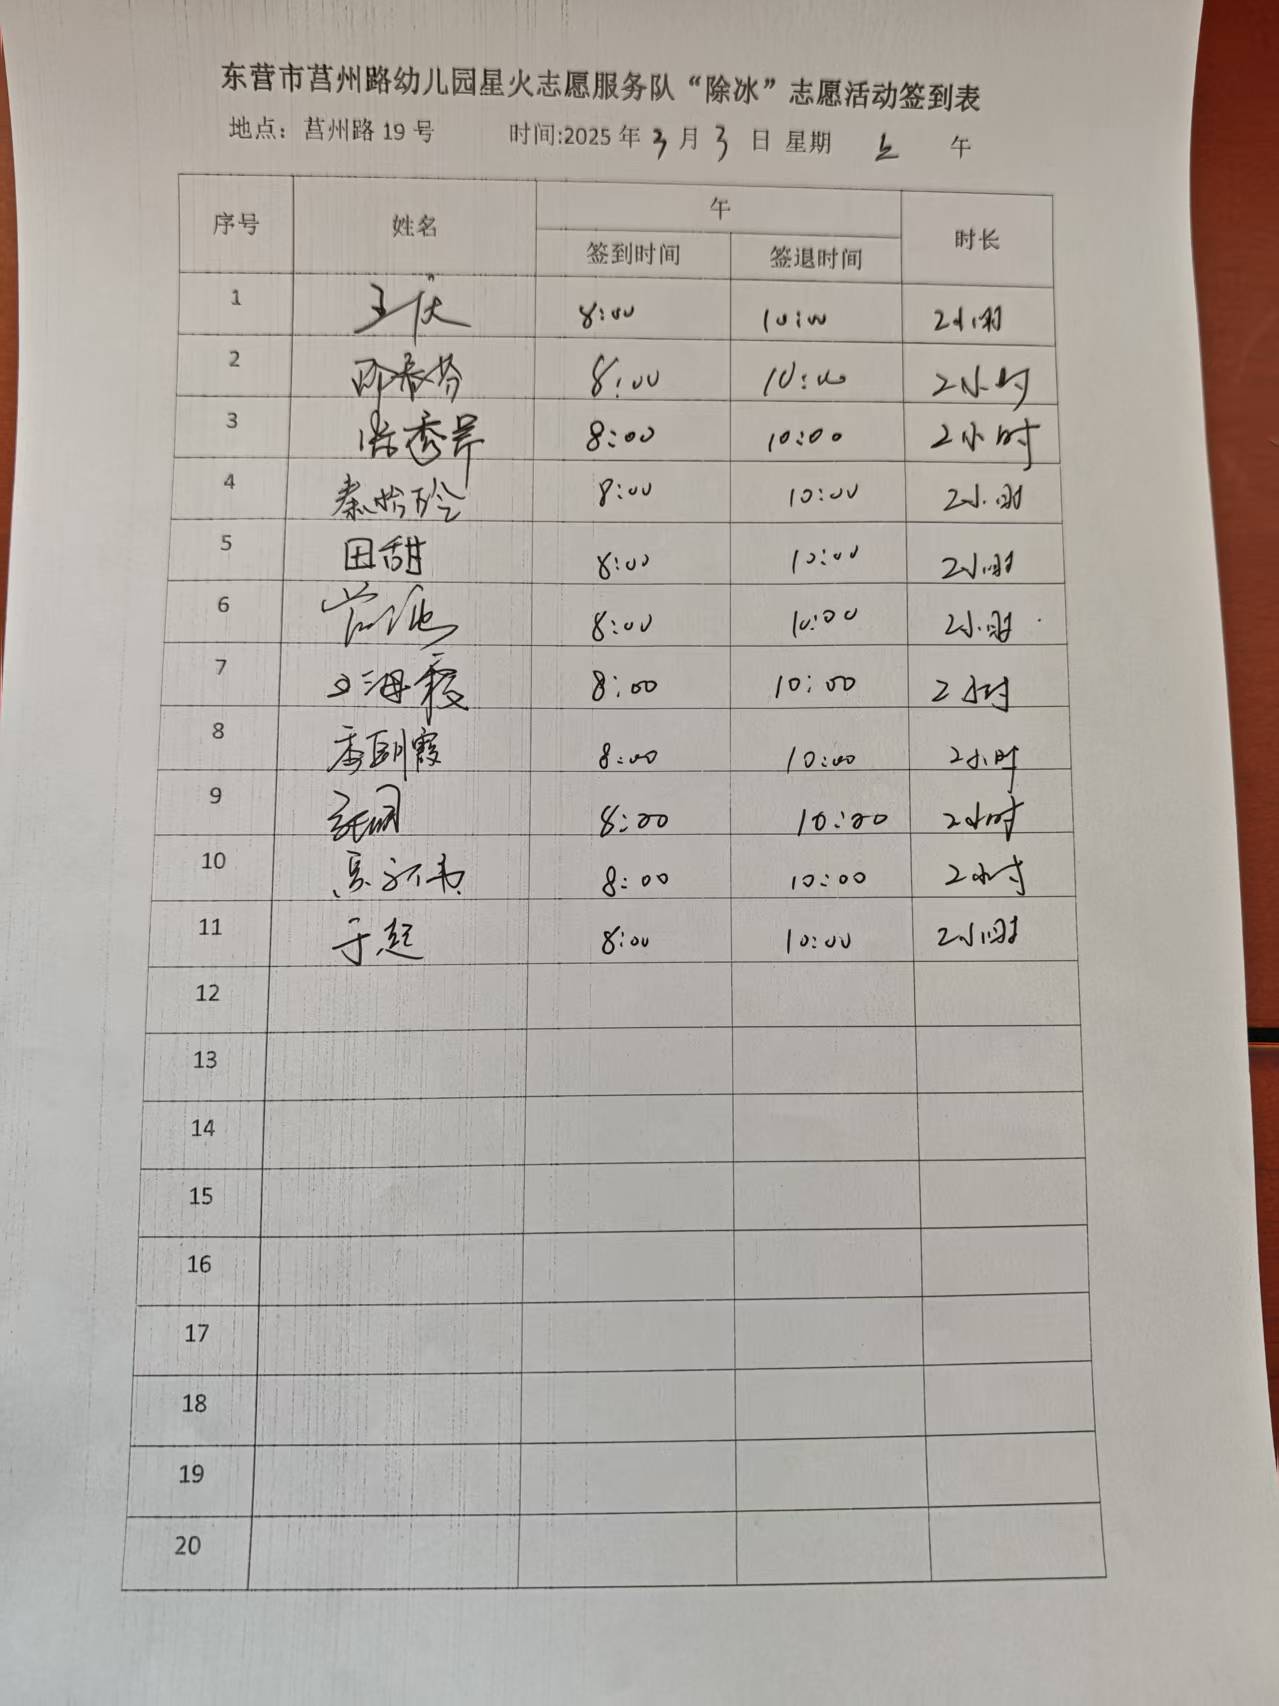 东营市莒州路幼儿园星火志愿服务队“除冰”志愿活动签到表
地点：莒州路 19 号 时间:2025 年 3 月 3 日 星期 上 午
序号 姓名 午 时长
签到时间 签退时间
1 8:00 10:00 2小时
2 8:00 10:00 2小时
3 张秀芹 8:00 10:00 2小时
4 8:00 10:00 2小时
5 田甜 8:00 10:00 2小时
6 8:00 10:00 2小时
7 海霞 8:00 10:00 2小时
8 霞 8:00 10:00 2小时
9 8:00 10:00 2小时
10 8:00 10:00 2小时
11 于超 8:00 10:00 2小时
12
13
14
15
16
17
18
19
20